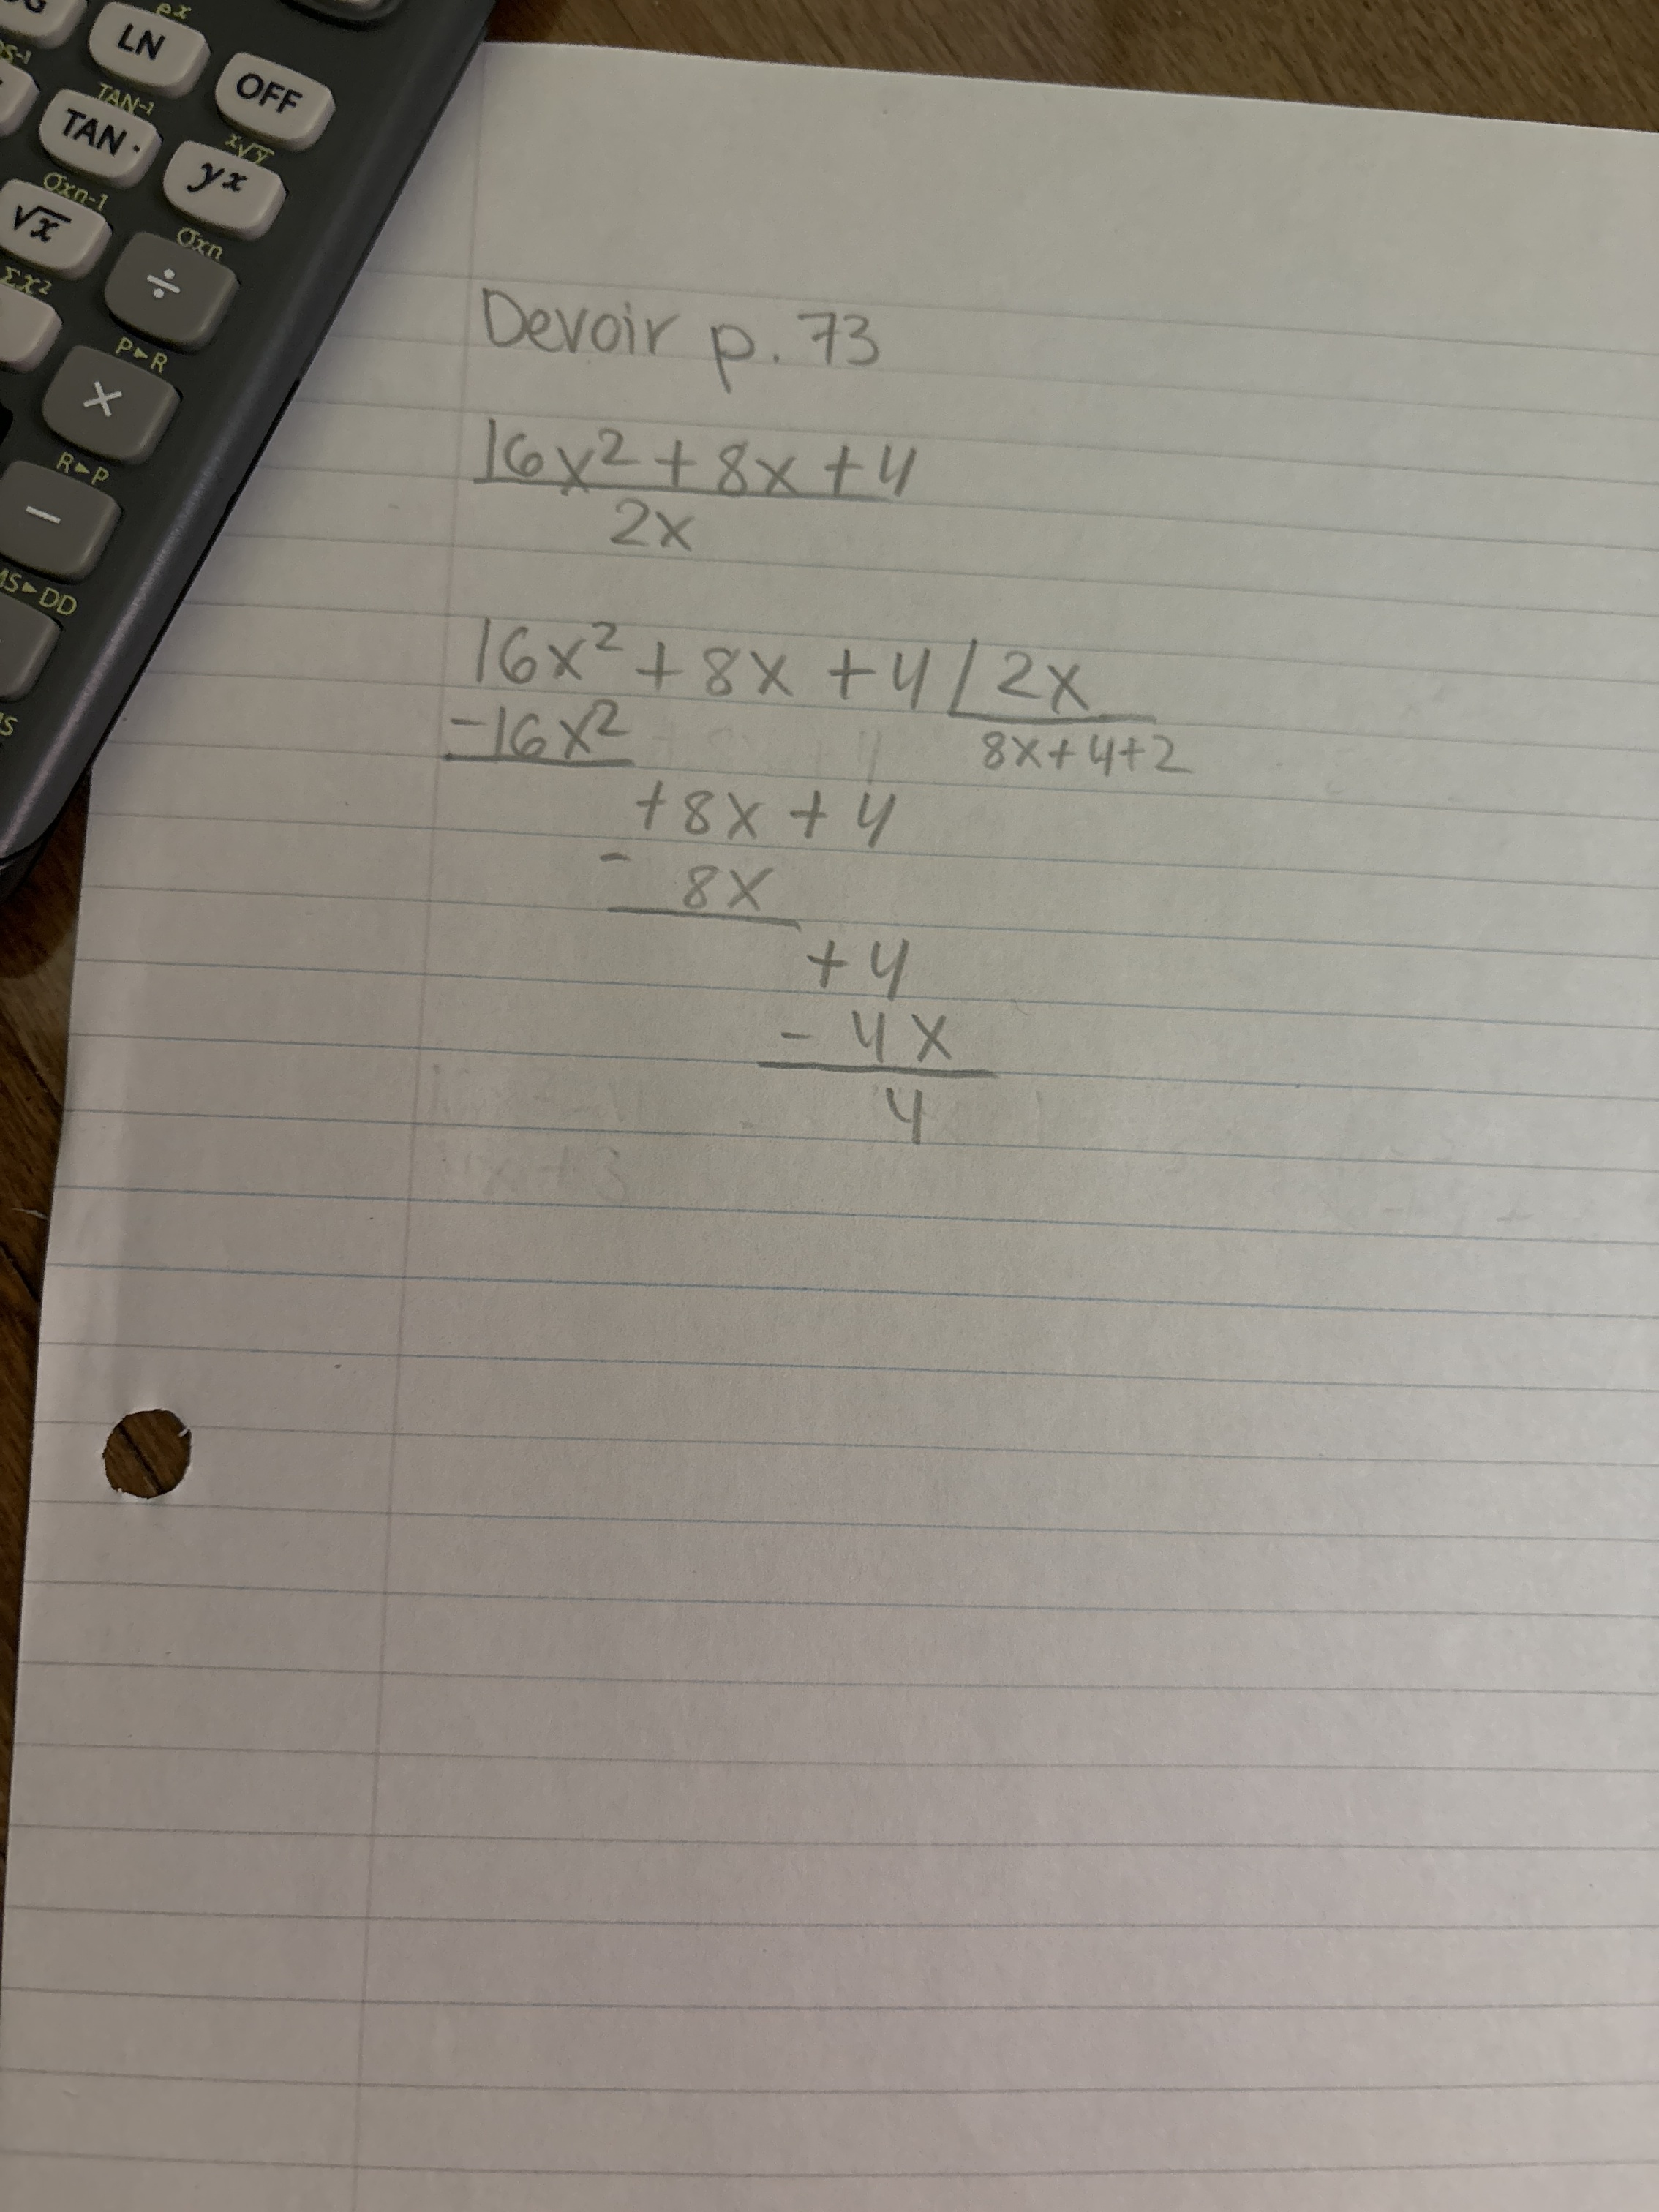 LN
eˣ
OFF
TAN-1
TAN
x√y
yx
σxn-1
√x
σxn
÷
Σx2
P▸R
×
R▸P
−
DD
Devoir p. 73
16x² + 8x + 4
2x
16x² + 8x + 4 | 2x
-16x² 8x+4+2
+8x + 4
- 8x
+ 4
- 4x
4